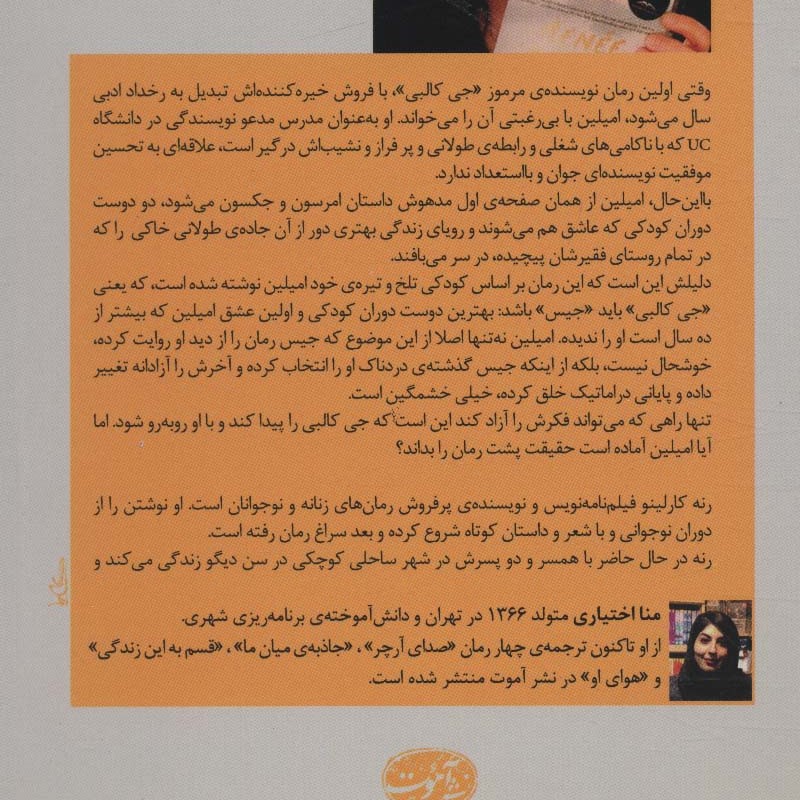 RENÉE
وقتی اولین رمان نویسنده‌ی مرموز «جی کالبی»، با فروش خیره‌کننده‌اش تبدیل به رخداد ادبی
سال می‌شود، امیلین با بی‌رغبتی آن را می‌خواند. او به‌عنوان مدرس مدعو نویسندگی در دانشگاه
UC که با ناکامی‌های شغلی و رابطه‌ی طولانی و پر فراز و نشیب‌اش درگیر است، علاقه‌ای به تحسین
موفقیت نویسنده‌ای جوان و بااستعداد ندارد.
بااین‌حال، امیلین از همان صفحه‌ی اول مدهوش داستان امرسون و جکسون می‌شود، دو دوست
دوران کودکی که عاشق هم می‌شوند و رویای زندگی بهتری دور از آن جاده‌ی طولانی خاکی را که
در تمام روستای فقیرشان پیچیده، در سر می‌بافند.
دلیلش این است که این رمان بر اساس کودکی تلخ و تیره‌ی خود امیلین نوشته شده است، که یعنی
«جی کالبی» باید «جیس» باشد: بهترین دوست دوران کودکی و اولین عشق امیلین که بیشتر از
ده سال است او را ندیده. امیلین نه‌تنها اصلا از این موضوع که جیس رمان را از دید او روایت کرده،
خوشحال نیست، بلکه از اینکه جیس گذشته‌ی دردناک او را انتخاب کرده و آخرش را آزادانه تغییر
داده و پایانی دراماتیک خلق کرده، خیلی خشمگین است.
تنها راهی که می‌تواند فکرش را آزاد کند این است که جی کالبی را پیدا کند و با او روبه‌رو شود. اما
آیا امیلین آماده است حقیقت پشت رمان را بداند؟
رنه کارلینو فیلم‌نامه‌نویس و نویسنده‌ی پرفروش رمان‌های زنانه و نوجوانان است. او نوشتن را از
دوران نوجوانی و با شعر و داستان کوتاه شروع کرده و بعد سراغ رمان رفته است.
رنه در حال حاضر با همسر و دو پسرش در شهر ساحلی کوچکی در سن دیگو زندگی می‌کند و
منا اختیاری متولد ۱۳۶۶ در تهران و دانش‌آموخته‌ی برنامه‌ریزی شهری.
از او تاکنون ترجمه‌ی چهار رمان «صدای آرچر»، «جاذبه‌ی میان ما»، «قسم به این زندگی»
و «هوای او» در نشر آموت منتشر شده است.
نشر آموت